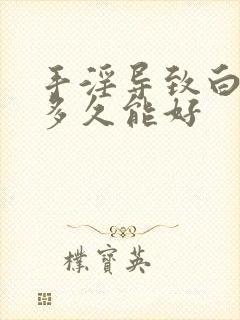 手淫导致白
多久能好
朴宝英